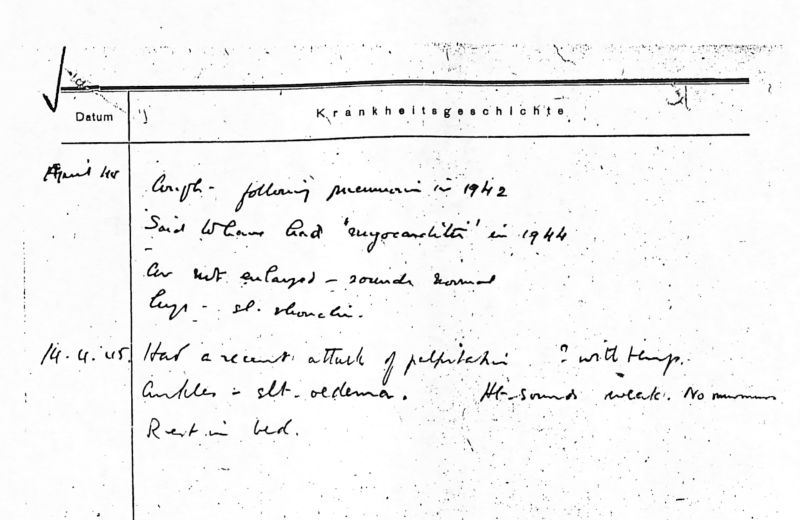 Datum Krankheitsgeschichte
April 45 Cough - following pneumonia in 1942
Said to have had "myocarditis" in 1944
Cor not enlarged - sounds normal
Lungs - sl. rhonchi.
14.4.45. Had a recent attack of palpitation ? with temp.
Ankles - slt. oedema. Ht-sounds weak. No murmurs
Rest in bed.